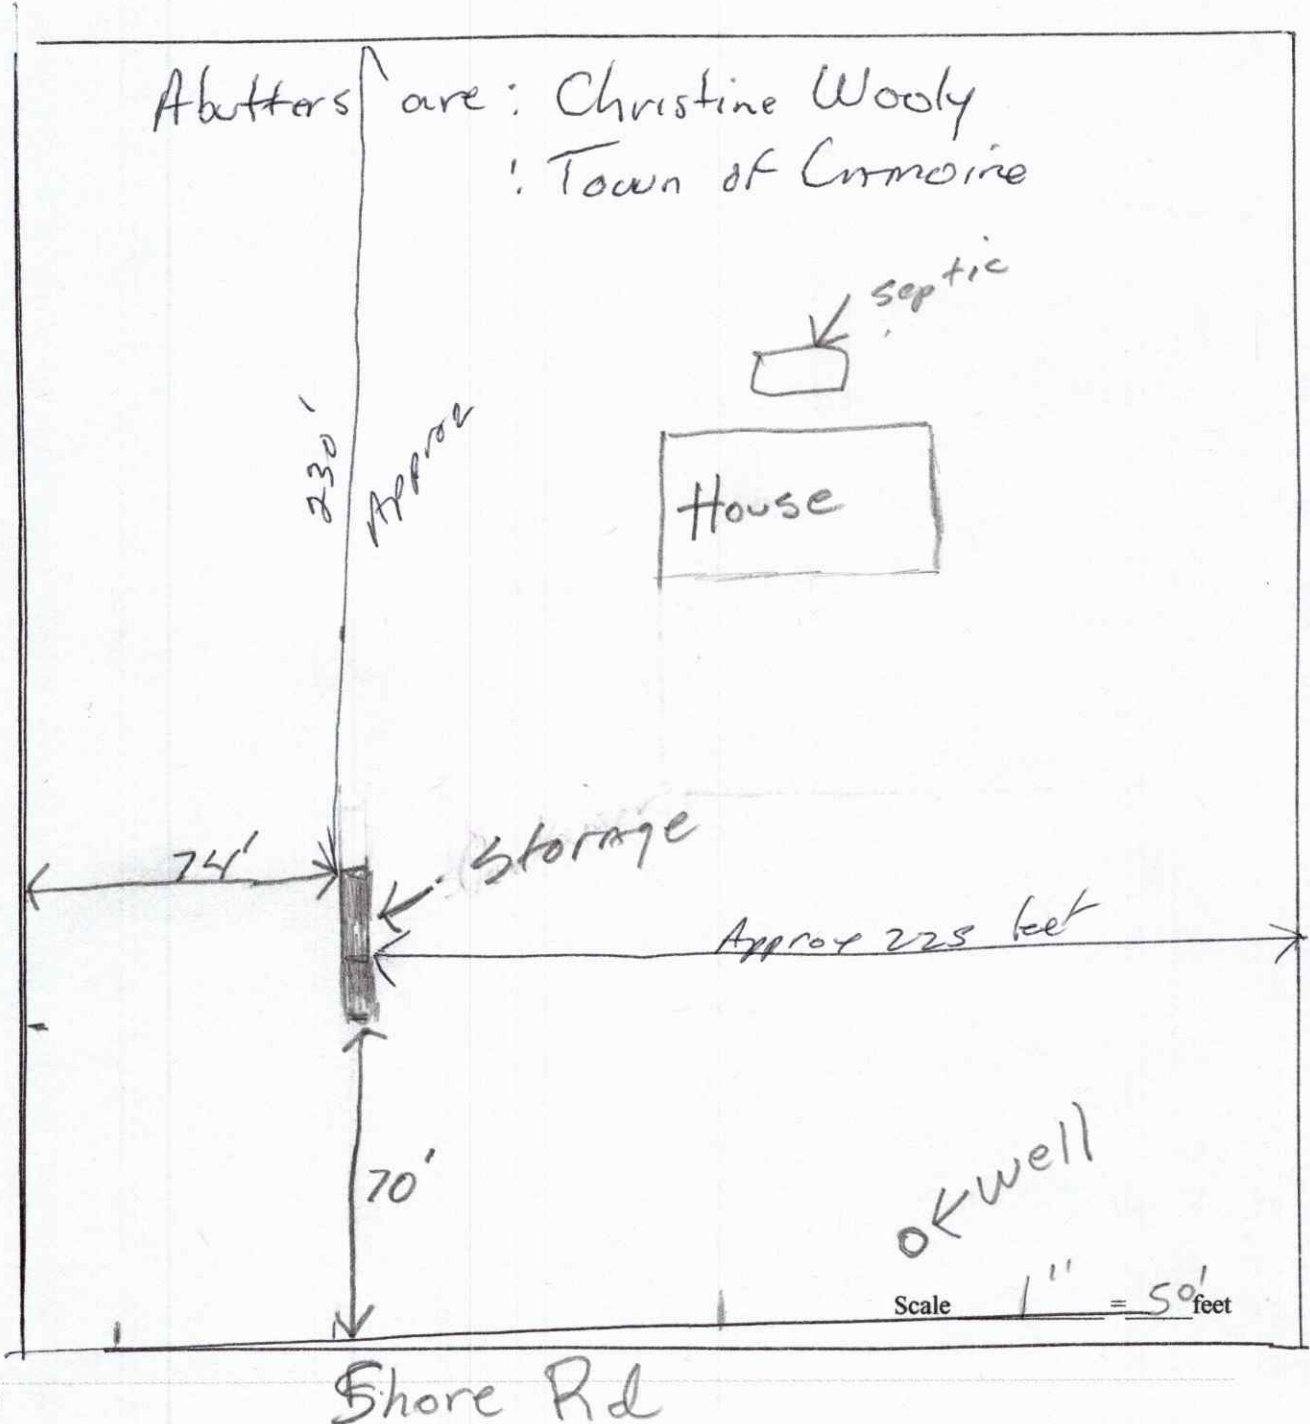 Abutters are: Christine Wooly
: Town of Lamoine
septic
230'
Approx
House
Storage
74'
Approx 225 feet
70'
well
Scale 1" = 50' feet
Shore Rd